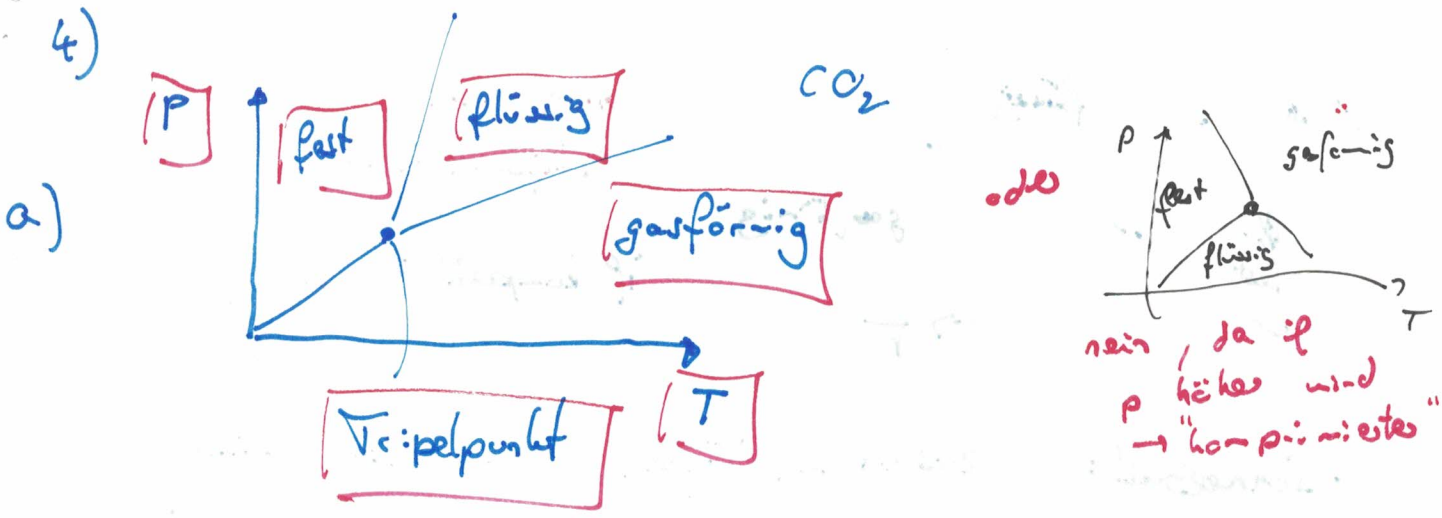 4)
CO₂
P
fest
flüssig
a)
gasförmig
Tripelpunkt
T
oder
P
fest
gasförmig
flüssig
T
nein, da if
P höher wird
→ "komprimierter"